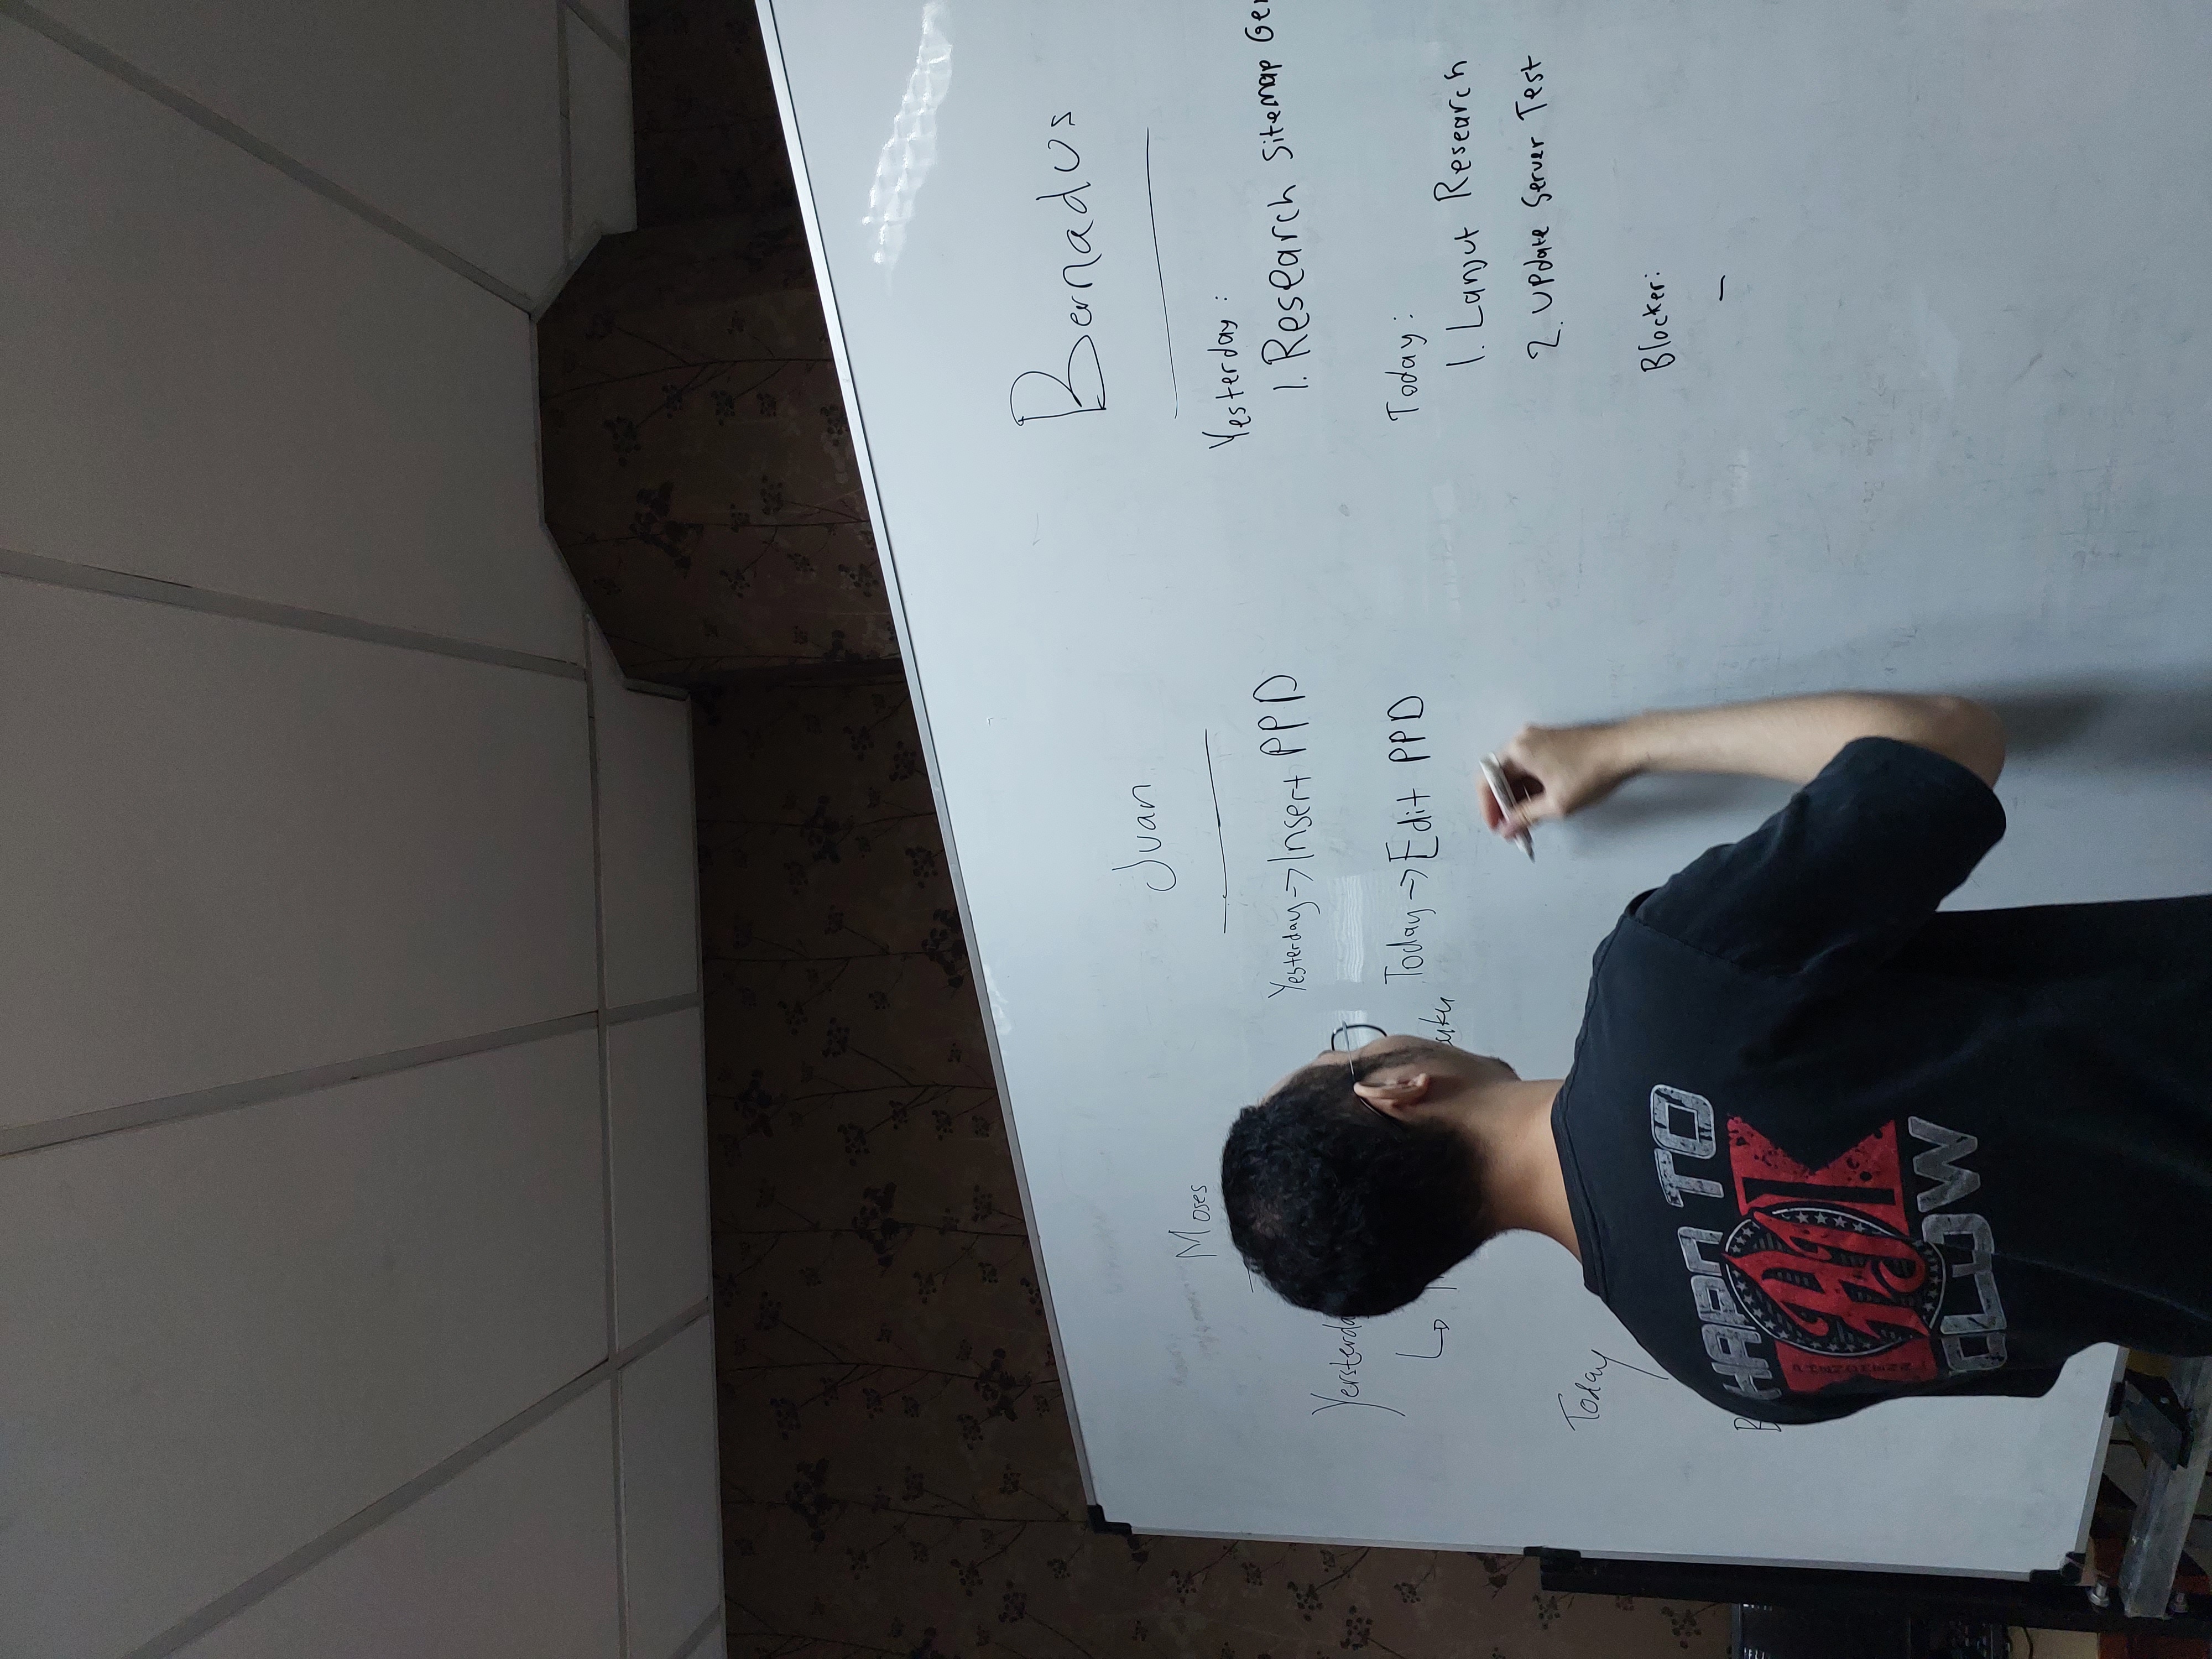 Moses
Today
Juan
Yesterday → Insert PPD
Today → Edit PPD
Bernadus
Yesterday :
1. Research Sitemap
Today :
1. Lanjut Research
2. Update Server Test
Blocker:
-
HARD TO
AJ